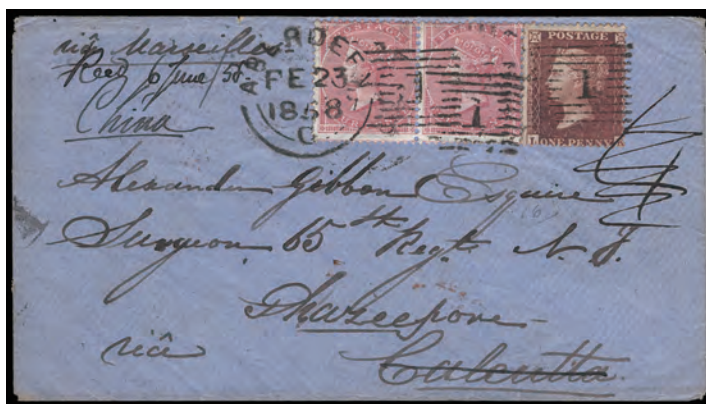 viâ Marseilles
Recd 6 June/58.
China
ABERDEEN
FE 23
1858
C
POSTAGE
POSTAGE
POSTAGE
1
1
1
L
ONE PENNY
Alexander Gibbon Esquire
Surgeon 65th Regt. N. I.
Ghazeepore
viâ
Calcutta.